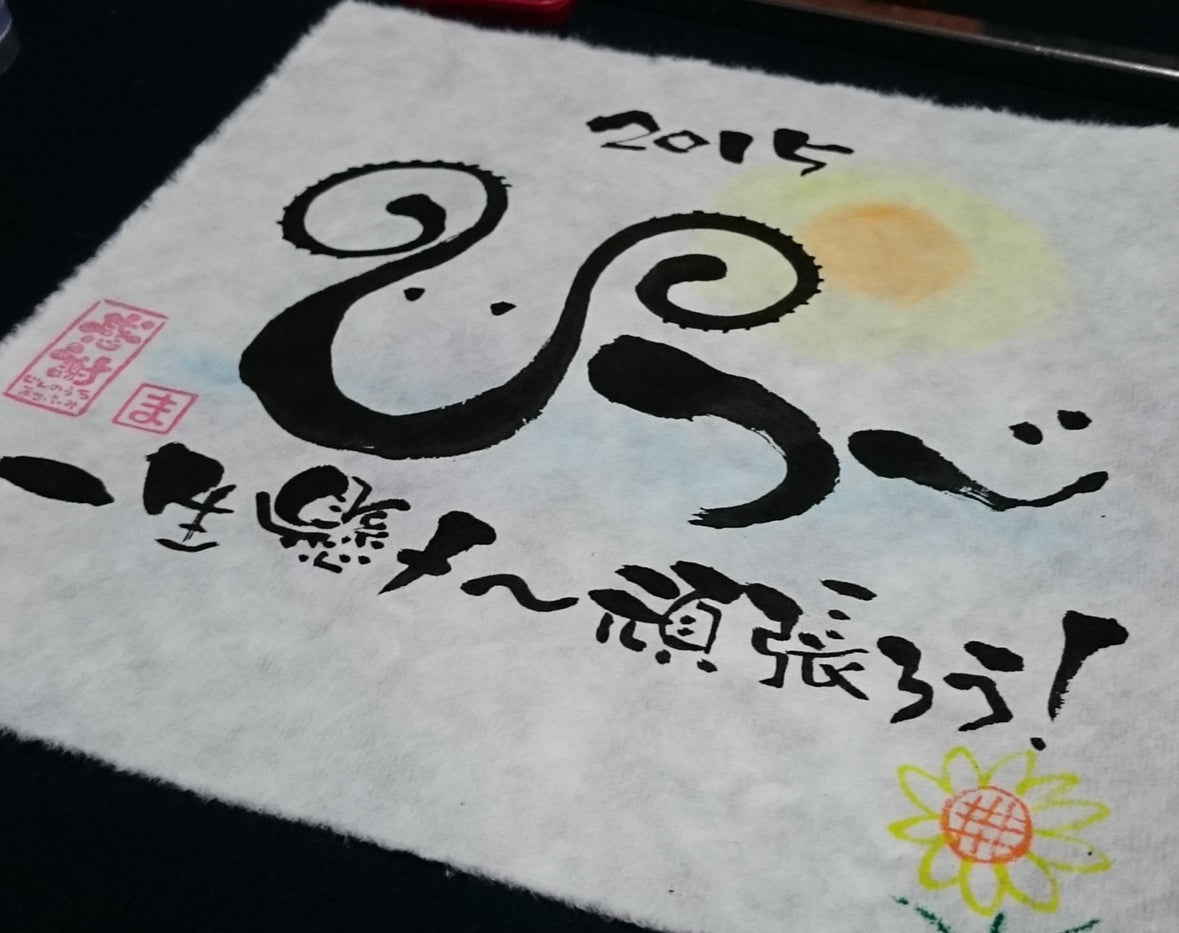 2015
ひつじ
一生懸メ～頑張ろう!
感謝
ま